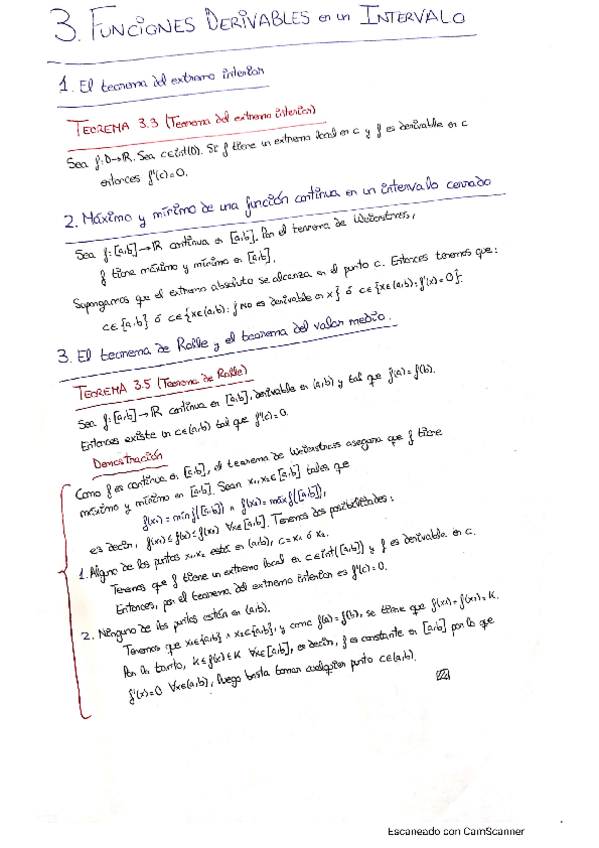 3. FUNCIONES DERIVABLES en un INTERVALO
1. El teorema del extremo interior
TEOREMA 3.3 (Teorema del extremo interior)
Sea f: D→ℝ. Sea c∈int(D). Si f tiene un extremo local en c y f es derivable en c
entonces f'(c)=0.
2. Máximo y mínimo de una función continua en un intervalo cerrado
Sea f: [a,b]→ℝ continua en [a,b]. Por el teorema de Weierstrass,
f tiene máximo y mínimo en [a,b].
Supongamos que el extremo absoluto se alcanza en el punto c. Entonces tenemos que:
c∈{a,b} ó c∈{x∈(a,b): f NO es derivable en x} ó c∈{x∈(a,b): f'(x)=0}.
3. El teorema de Rolle y el teorema del valor medio.
TEOREMA 3.5 (Teorema de Rolle)
Sea f: [a,b]→ℝ continua en [a,b], derivable en (a,b) y tal que f(a)=f(b).
Entonces existe un c∈(a,b) tal que f'(c)=0.
Demostración
Como f es continua en [a,b], el teorema de Weierstrass asegura que f tiene
máximo y mínimo en [a,b]. Sean x₁,x₂∈[a,b] tales que
f(x₁)=mín f([a,b]) ∧ f(x₂)=máx f([a,b]),
es decir, f(x₁)≤f(x)≤f(x₂) ∀x∈[a,b]. Tenemos dos posibilidades:
1. Alguno de los puntos x₁,x₂ están en (a,b), c=x₁ ó x₂.
Tenemos que f tiene un extremo local en c∈int([a,b]) y f es derivable en c.
Entonces, por el teorema del extremo interior es f'(c)=0.
2. Ninguno de los puntos están en (a,b).
Tenemos que x₁∈{a,b} ∧ x₂∈{a,b}, y como f(a)=f(b), se tiene que f(x₁)=f(x₂)=K.
Por lo tanto, K≤f(x)≤K ∀x∈[a,b], es decir, f es constante en [a,b] por lo que
f'(x)=0 ∀x∈(a,b), luego basta tomar cualquier punto c∈(a,b).
Escaneado con CamScanner